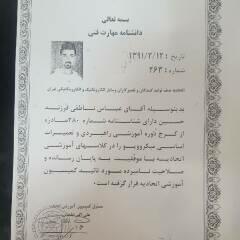 بسمه تعالی
دانشنامه مهارت فنی
تاریخ : ۱۳۹۱/۲/۱۲
شماره : ۲۶۳
اتحادیه صنف تولید کنندگان و تعمیرکاران وسایل الکترونیک و الکترومکانیکی تهران
بدینوسیله آقای عباس ناطقی فرزند
حسین دارای شناسنامه شماره ۲۸۰ صادره
از کرج دوره آموزشی راهبردی و تعمیرات
اساسی میکروویو را در کلاسهای آموزشی
اتحادیه با موفقیت به پایان رسانده و
صلاحیت نامبرده مورد تائید کمیسیون
آموزشی اتحادیه قرار گرفته است
مدیر کمیسیون آموزشی اتحادیه